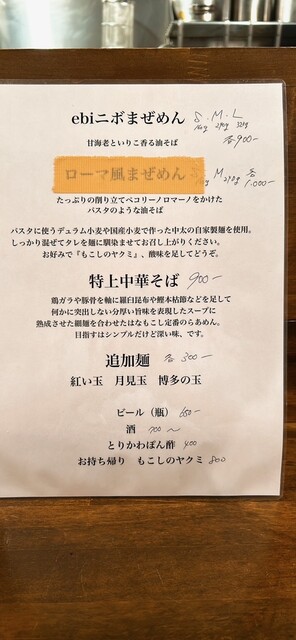 ebiニボまぜめん S . M . L
各900-
甘海老といりこ香る油そば
ローマ風まぜめん M 各
1.000-
たっぷりの削り立てペコリーノロマーノをかけた
パスタのような油そば
パスタに使うデュラム小麦や国産小麦で作った中太の自家製麺を使用。
しっかり混ぜてタレを麺に馴染ませてお召し上がりください。
お好みで『もこしのヤクミ』、酸味を足してどうぞ。
特上中華そば 900-
鶏ガラや豚骨を軸に羅臼昆布や鰹本枯節などを足して
何かに突出しない分厚い旨味を表現したスープに
熟成させた細麺を合わせたはなもこし定番のらあめん。
目指すはシンプルだけど深い味、です。
追加麺 各 300-
紅い玉 月見玉 博多の玉
ビール（瓶） 650-
酒 700 〜
とりかわぽん酢 400
お持ち帰り もこしのヤクミ 800